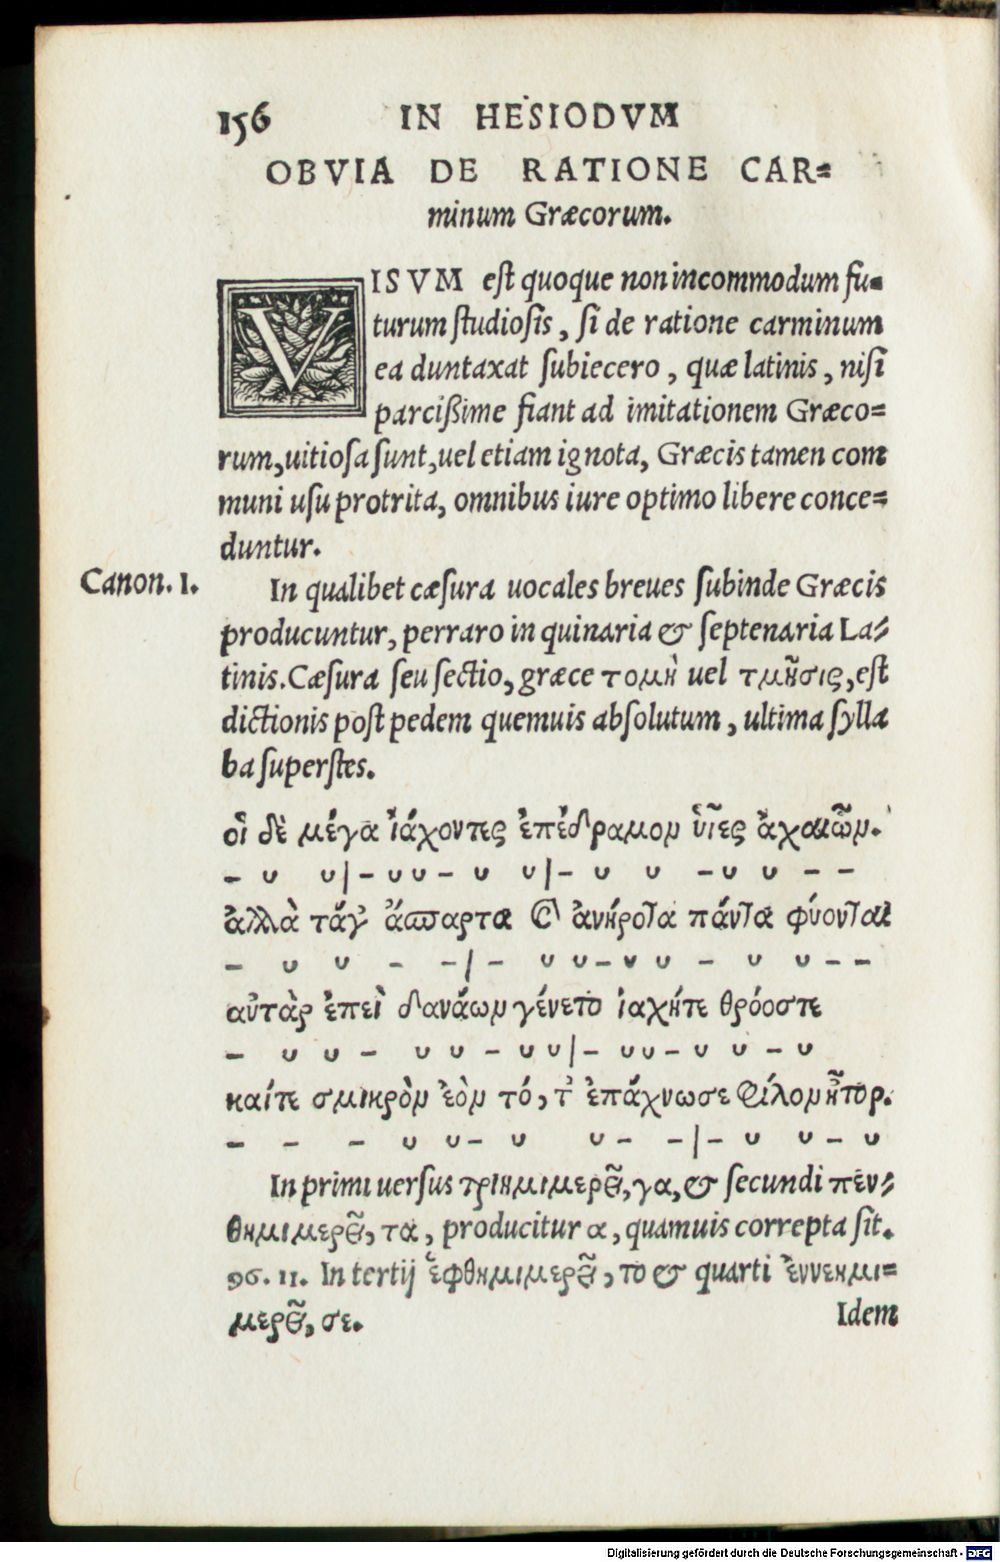 156 IN HESIODVM
OBVIA DE RATIONE CAR=
minum Græcorum.
VISVM est quoque non incommodum fu=
turum studiosis, si de ratione carminum
ea duntaxat subiecero, quæ latinis, nisi
parcißime fiant ad imitationem Græco=
rum, uitiosa sunt, uel etiam ignota, Græcis tamen com
muni usu protrita, omnibus iure optimo libere conce=
duntur.
Canon. I. In qualibet cæsura uocales breues subinde Græcis
producuntur, perraro in quinaria & septenaria La=
tinis. Cæsura seu sectio, græce τομὴ uel τμῆσις, est
dictionis post pedem quemuis absolutum, ultima sylla
ba superstes.
οἱ δὲ μέγα ἰάχοντες ἐπέδραμον ὑῖες ἀχαιῶν.
– ᴗ ᴗ|– ᴗ ᴗ – ᴗ ᴗ|– ᴗ ᴗ – ᴗ ᴗ – –
ἀλλὰ τάγ' ἄσπαρτα καὶ ἀνήροτα πάντα φύονται
– ᴗ ᴗ – –|– ᴗ ᴗ – ᴗ ᴗ – ᴗ ᴗ – –
αὐτὰρ ἐπεὶ δαναῶν γένετο ἰαχήτε θρόοστε
– ᴗ ᴗ – ᴗ ᴗ – ᴗ ᴗ|– ᴗ ᴗ – ᴗ ᴗ – ᴗ
καίτε σμικρὸν ἐὸν τό, τ' ἐπάχνωσε φίλον ἦτορ.
– – – ᴗ ᴗ – ᴗ ᴗ – –|– ᴗ ᴗ – ᴗ
In primi uersus τριημιμερεῖ, γα, & secundi πεν=
θημιμερεῖ, τα, producitur α, quamuis correpta sit.
96. 11. In tertij ἑφθημιμερεῖ, το & quarti ἐννεημι=
μερεῖ, σε.
Idem
Digitalisierung gefördert durch die Deutsche Forschungsgemeinschaft - DFG